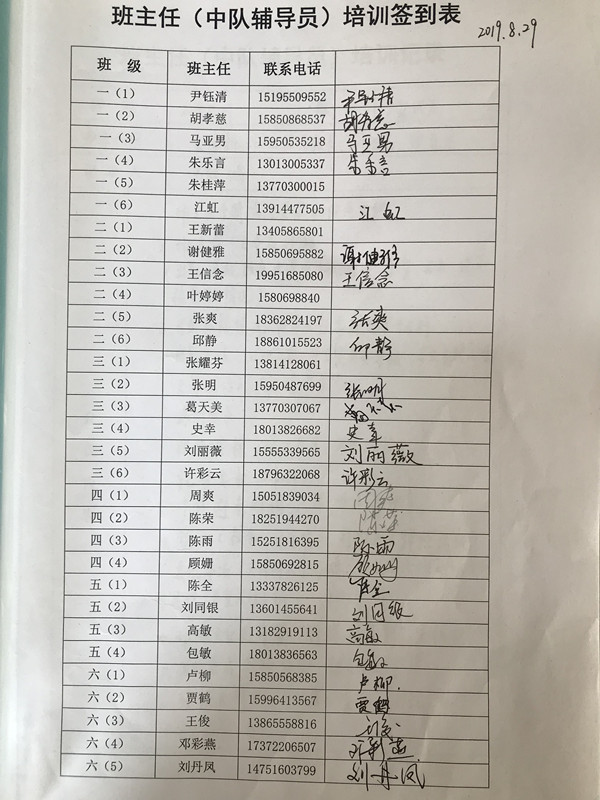 班主任（中队辅导员）培训签到表
2019.8.29
班 级 班主任 联系电话
一（1） 尹钰清 15195509552 尹钰清
一（2） 胡孝慈 15850868537 胡孝慈
一（3） 马亚男 15950535218 马亚男
一（4） 朱乐言 13013005337 朱乐言
一（5） 朱桂萍 13770300015
一（6） 江虹 13914477505 江虹
二（1） 王新蕾 13405865801
二（2） 谢健雅 15850695882 谢健雅
二（3） 王信念 19951685080 王信念
二（4） 叶婷婷 1580698840
二（5） 张爽 18362824197 张爽
二（6） 邱静 18861015523 邱静
三（1） 张耀芬 13814128061
三（2） 张明 15950487699 张明
三（3） 葛天美 13770307067 葛天美
三（4） 史幸 18013826682 史幸
三（5） 刘丽薇 15555339565 刘丽薇
三（6） 许彩云 18796322068 许彩云
四（1） 周爽 15051839034 周爽
四（2） 陈荣 18251944270 陈荣
四（3） 陈雨 15251816395 陈雨
四（4） 顾姗 15850692815 顾姗
五（1） 陈全 13337826125 陈全
五（2） 刘同银 13601455641 刘同银
五（3） 高敏 13182919113 高敏
五（4） 包敏 18013836563 包敏
六（1） 卢柳 15850568385 卢柳.
六（2） 贾鹤 15996413567 贾鹤
六（3） 王俊 13865558816
六（4） 邓彩燕 17372206507 邓彩燕
六（5） 刘丹凤 14751603799 刘丹凤